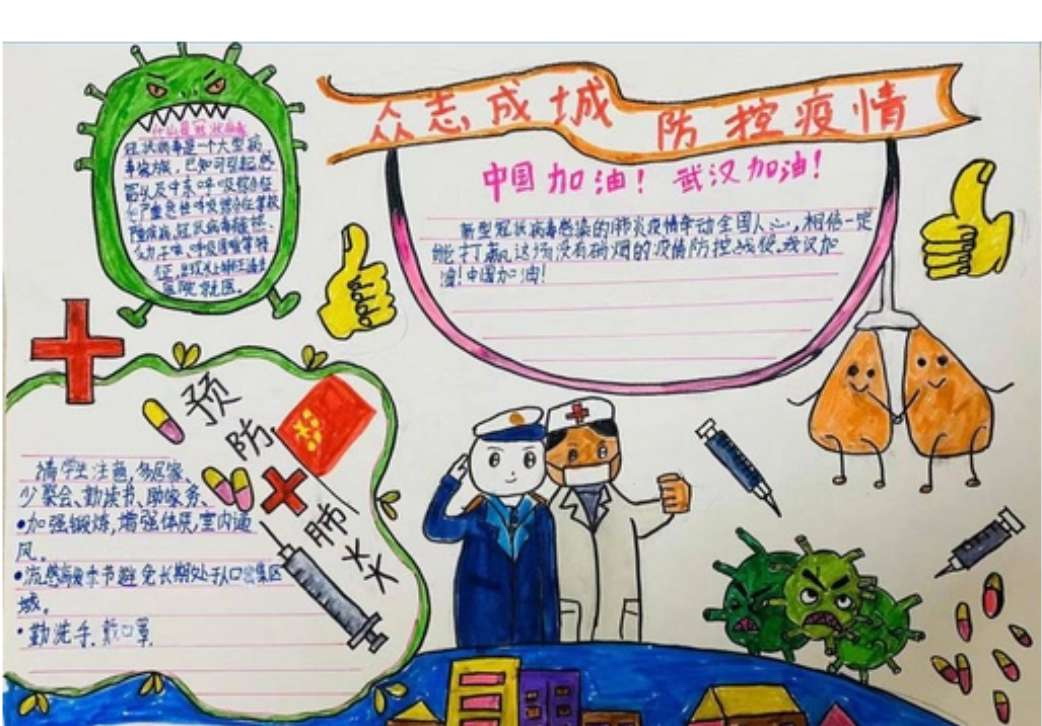 众志成城 防控疫情
中国加油! 武汉加油!
新型冠状病毒感染的肺炎疫情牵动全国人心,相信一定
能打赢这场没有硝烟的疫情防控战役.武汉加
油!中国加油!
什么是冠状病毒
冠状病毒是一个大型病
毒家族,已知可引起感
冒以及中东呼吸综合征
和严重急性呼吸综合征等较
力、干咳、呼吸困难等特
医院就医。
预防肺炎
请学生注意,多居家、
少聚会、勤读书、助家务、
•加强锻炼,增强体质,室内通
风。
避免长期处于人口密集区
域。
•勤洗手.戴口罩.